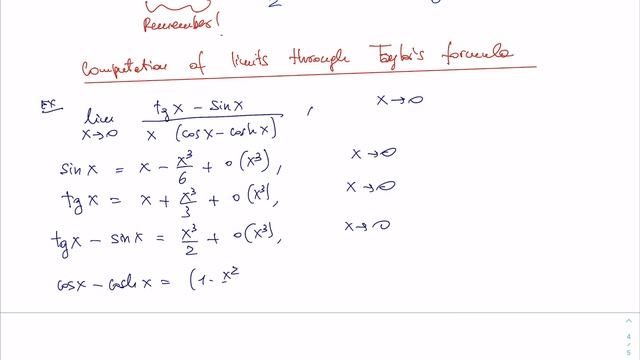 Remember!
2
Computation of limits through Taylor's formula
Ex lim x→0 (tg x − sin x) / (x (cos x − cosh x)), x→0
sin x = x − x³/6 + o(x³), x→0
tg x = x + x³/3 + o(x³), x→0
tg x − sin x = x³/2 + o(x³), x→0
cos x − cosh x = (1 − x²
4 / 5